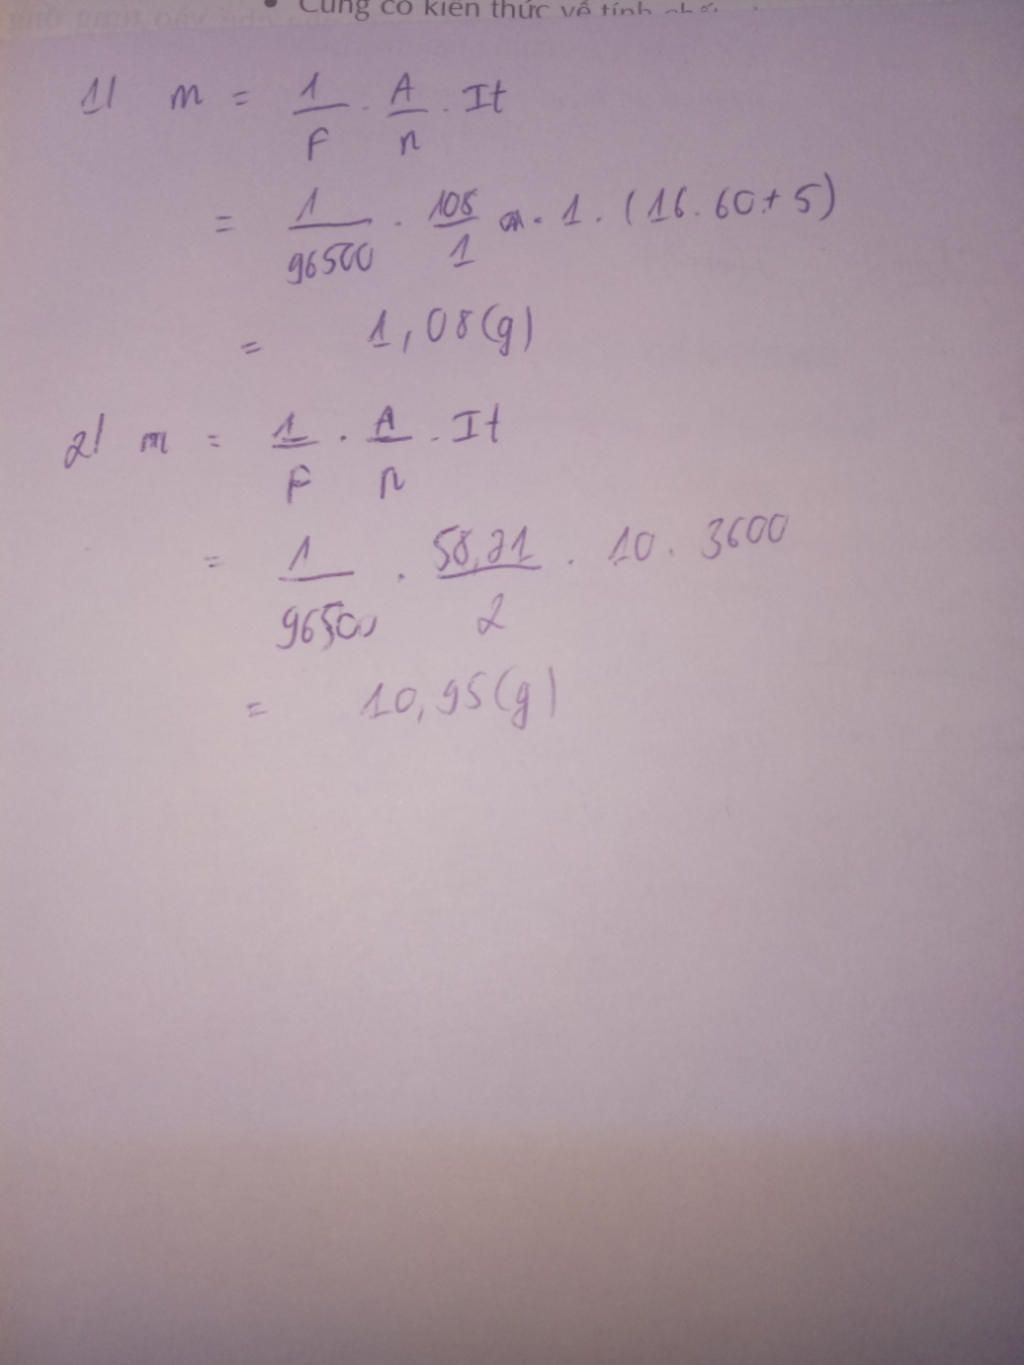 Củng cố kiến thức về tính chất
1/ m = 1/F . A/n . It
= 1/96500 . 108/1 . 1 . (16.60+5)
= 1,08(g)
2/ m = 1/F . A/n . It
= 1/96500 . 58,71/2 . 10 . 3600
= 10,95(g)